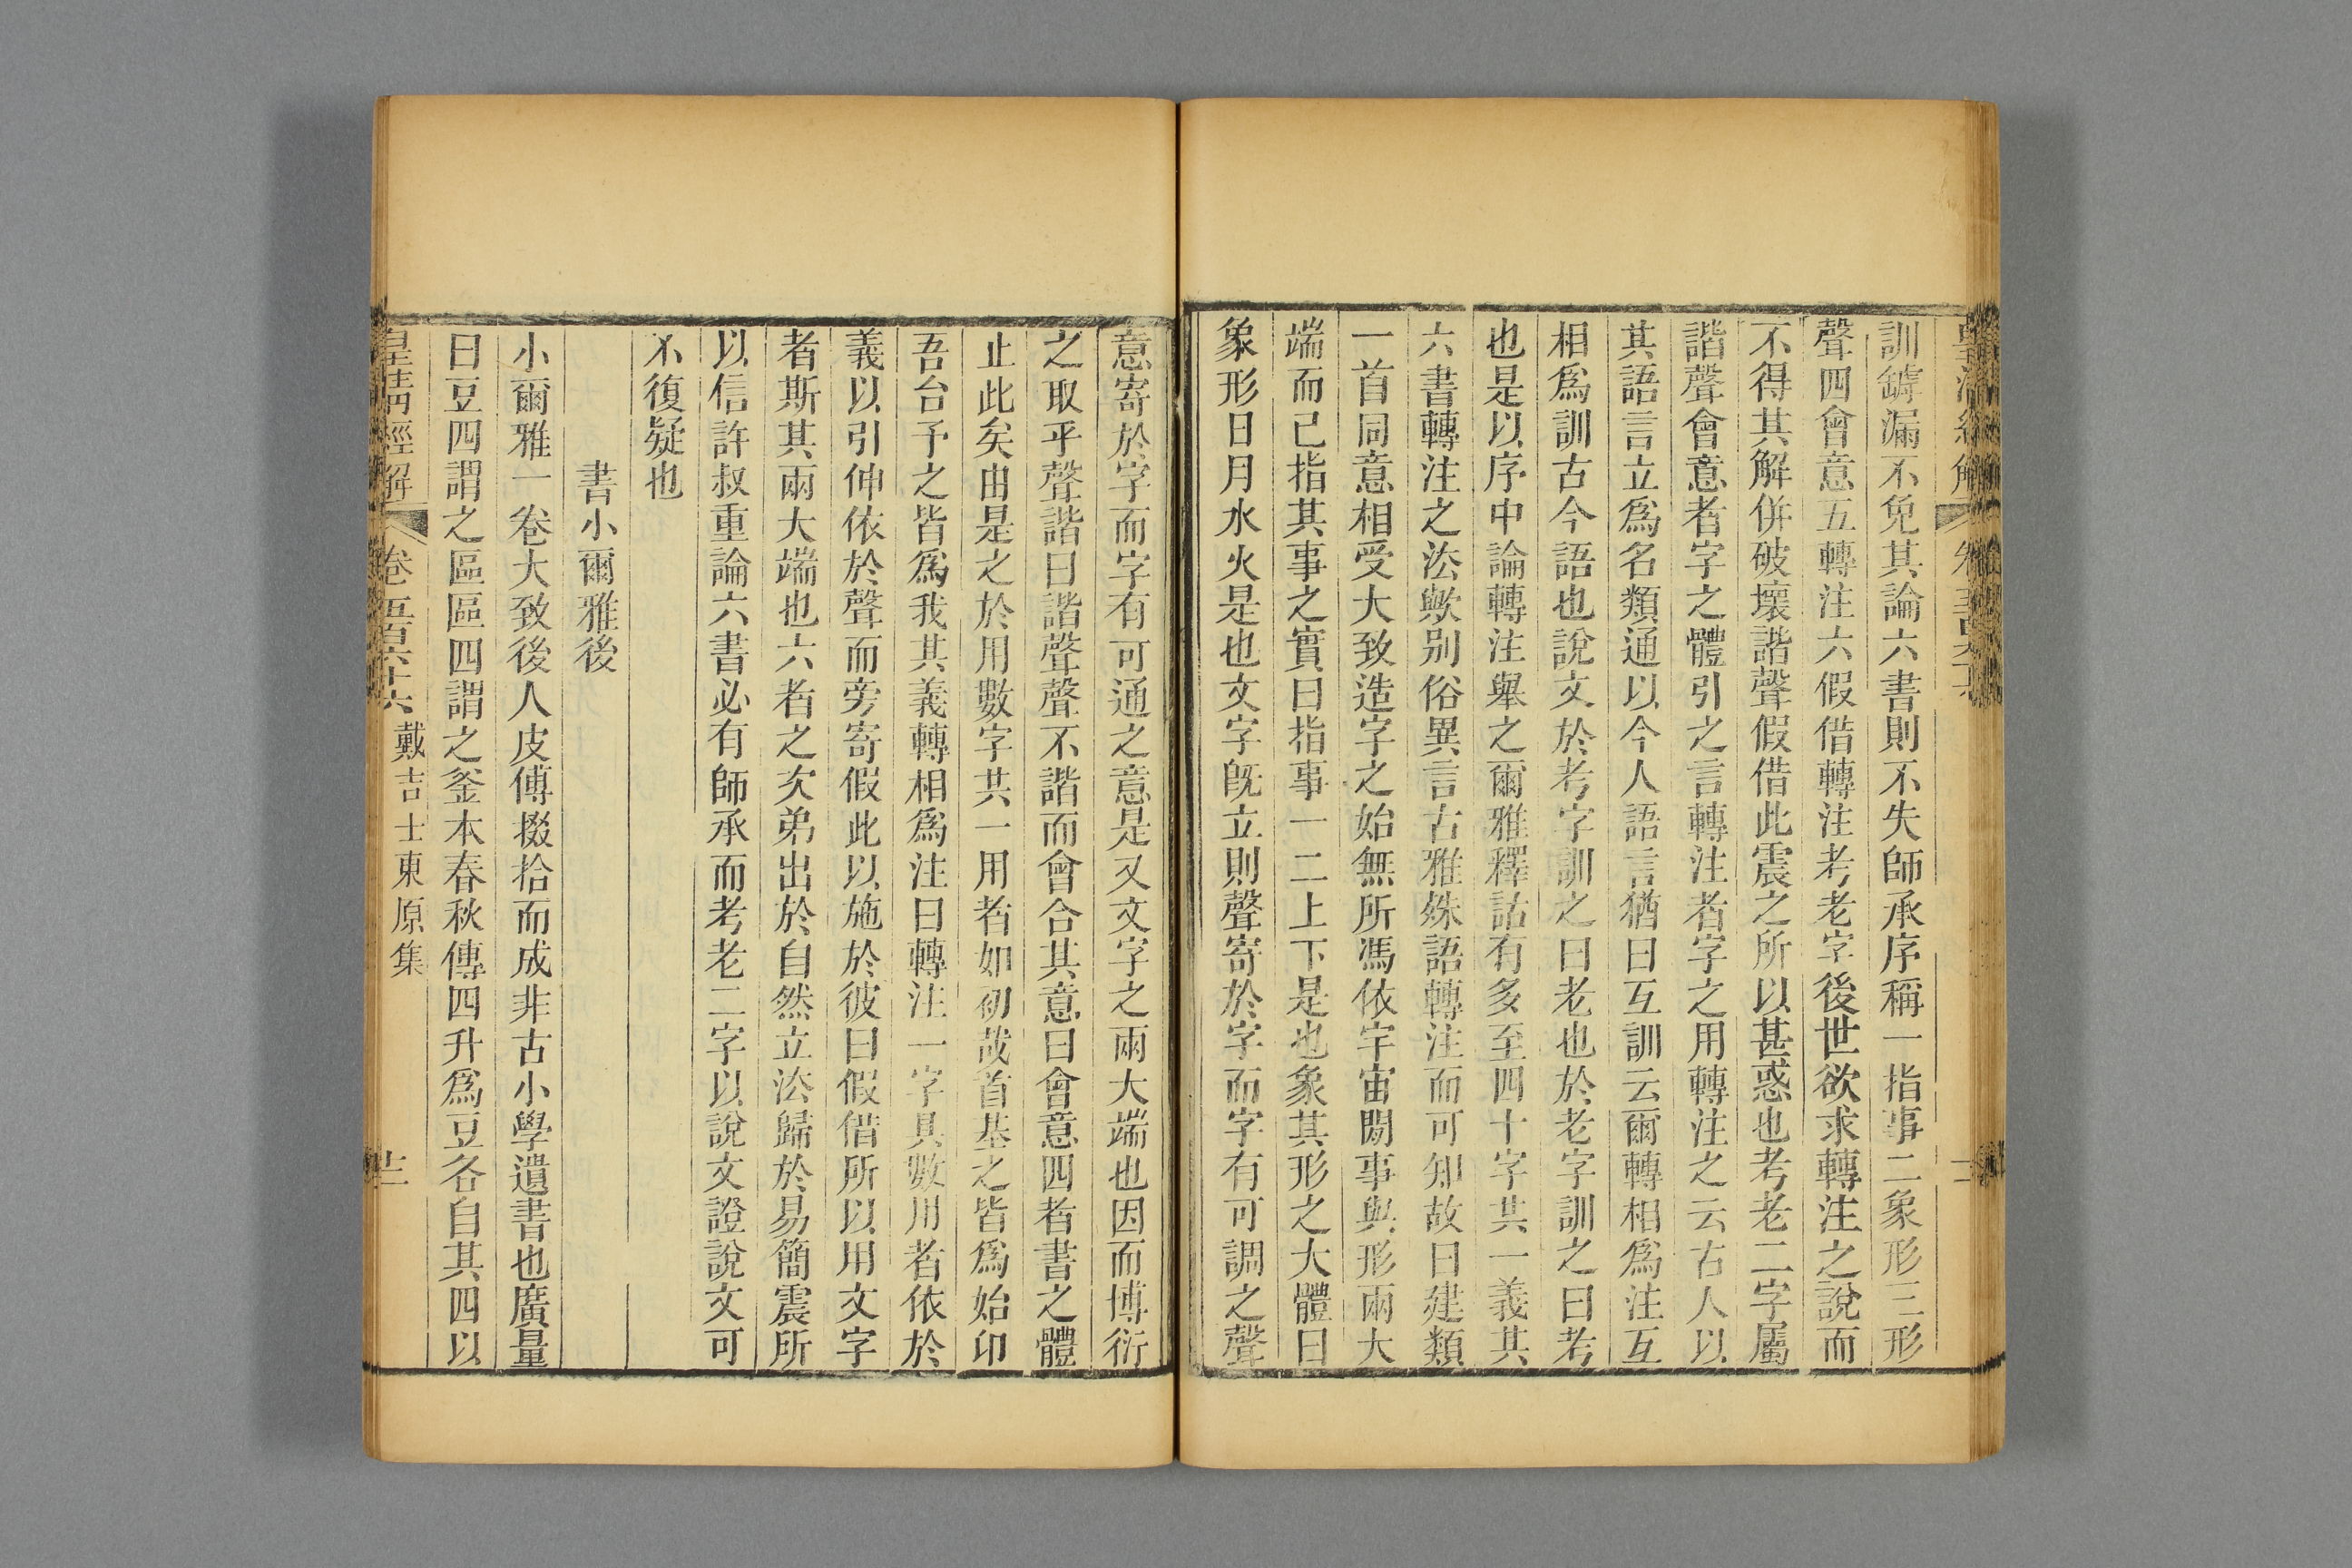 訓罅漏不免其論六書則不失師承序稱一指事二象形三形
聲四會意五轉注六假借轉注考老字後世欲求轉注之說而
不得其解併破壞諧聲假借此震之所以甚惑也考老二字屬
諧聲會意者字之體引之言轉注者字之用轉注之云古人以
其語言立爲名類通以今人語言猶曰互訓云爾轉相爲注互
相爲訓古今語也說文於考字訓之曰老也於老字訓之曰考
也是以序中論轉注舉之爾雅釋詁有多至四十字共一義其
六書轉注之法歟别俗異言古雅殊語轉注而可知故曰建類
一首同意相受大致造字之始無所馮依宇宙閒事與形兩大
端而已指其事之實曰指事一二上下是也象其形之大體曰
象形日月水火是也文字旣立則聲寄於字而字有可調之聲
意寄於字而字有可通之意是又文字之兩大端也因而博衍
之取乎聲諧曰諧聲聲不諧而會合其意曰會意四者書之體
止此矣由是之於用數字共一用者如初哉首基之皆爲始卬
吾台予之皆爲我其義轉相爲注曰轉注一字具數用者依於
義以引伸依於聲而旁寄假此以施於彼曰假借所以用文字
者斯其兩大端也六者之次弟出於自然立法歸於易簡震所
以信許叔重論六書必有師承而考老二字以說文證說文可
不復疑也
書小爾雅後
小爾雅一卷大致後人皮傅掇拾而成非古小學遺書也廣量
曰豆四謂之區區四謂之釜本春秋傳四升爲豆各自其四以
皇清經解 卷五百六十六 戴吉士東原集